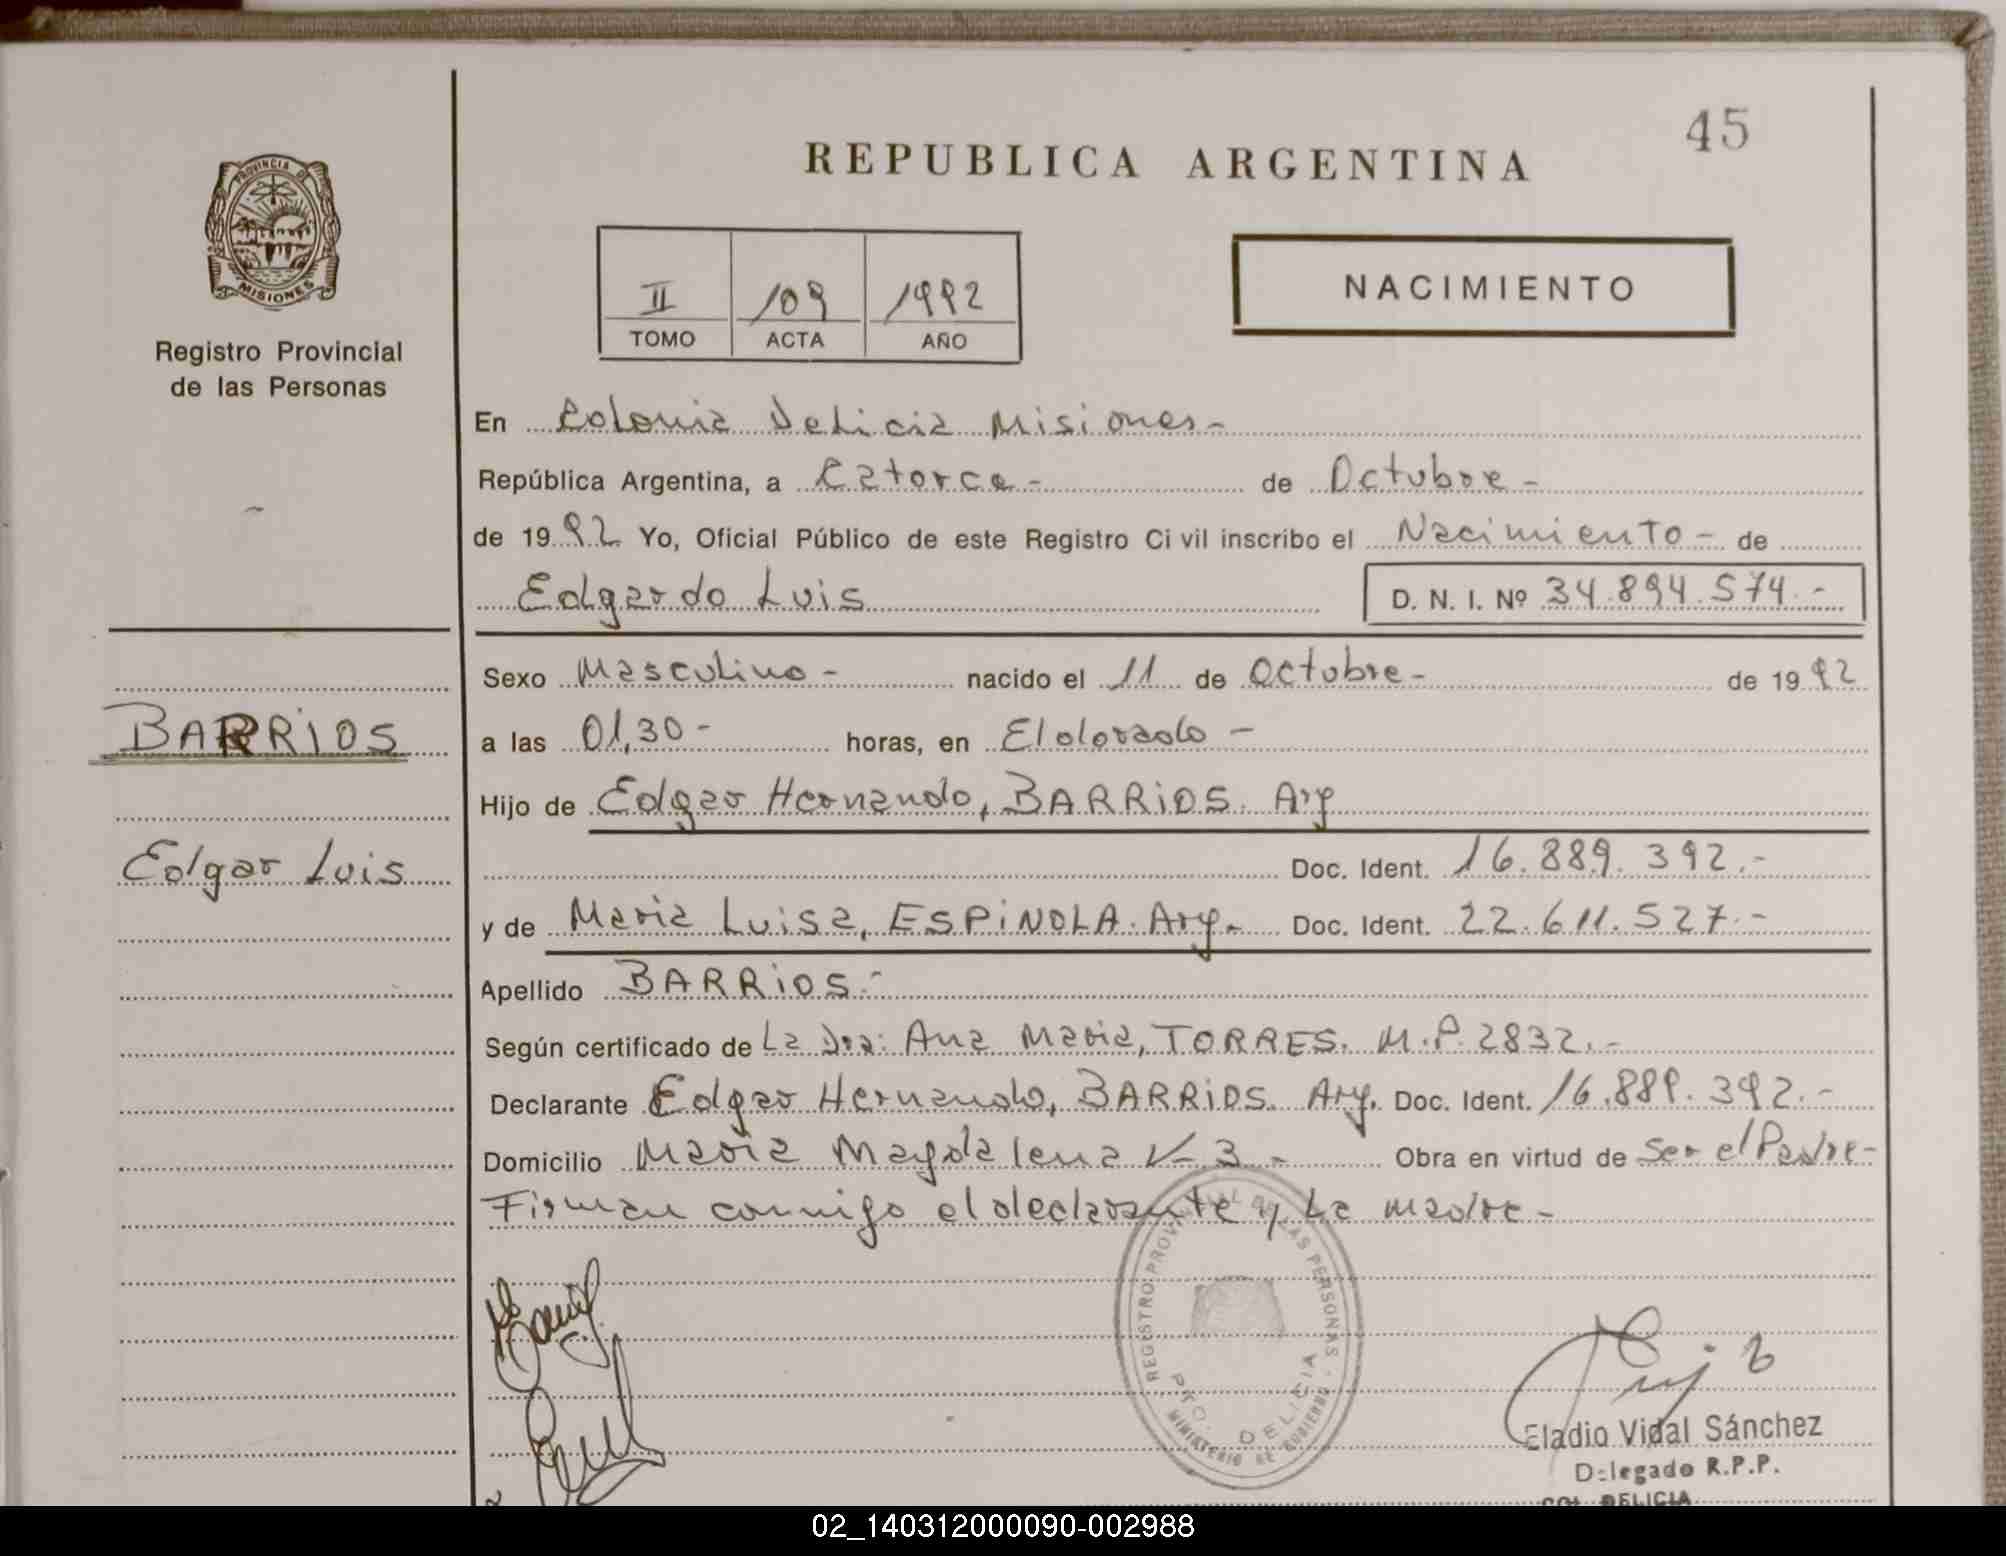 45
REPUBLICA ARGENTINA
PROVINCIA DE
MISIONES
Registro Provincial
de las Personas
II 109 1992
TOMO ACTA AÑO
NACIMIENTO
En Colonia Delicia Misiones-
República Argentina, a Catorce - de Octubre -
de 1992 Yo, Oficial Público de este Registro Civil inscribo el Nacimiento - de
Edgardo Luis D. N. I. Nº 34.894.574.-
Sexo Masculino - nacido el 11 de Octubre - de 1992
BARRIOS
a las 01,30 - horas, en Eldorado -
Hijo de Edgar Hernando, BARRIOS. Arg
Edgar Luis
Doc. Ident. 16.889.392.-
y de Maria Luisa, ESPINOLA. Arg. Doc. Ident. 22.611.527.-
Apellido BARRIOS.-
Según certificado de La Dra: Ana Maria, TORRES. M.P. 2832.-
Declarante Edgar Hernando, BARRIOS. Arg. Doc. Ident. 16.889.392.-
Domicilio Maria Magdalena K-3 - Obra en virtud de Ser el Padre-
Firman conmigo el declarante y La madre -
REGISTRO PROVINCIAL DE LAS PERSONAS
PTO. DELICIA
MINISTERIO DE GOBIERNO
Eladio Vidal Sánchez
Delegado R.P.P.
COL. DELICIA
02_140312000090-002988